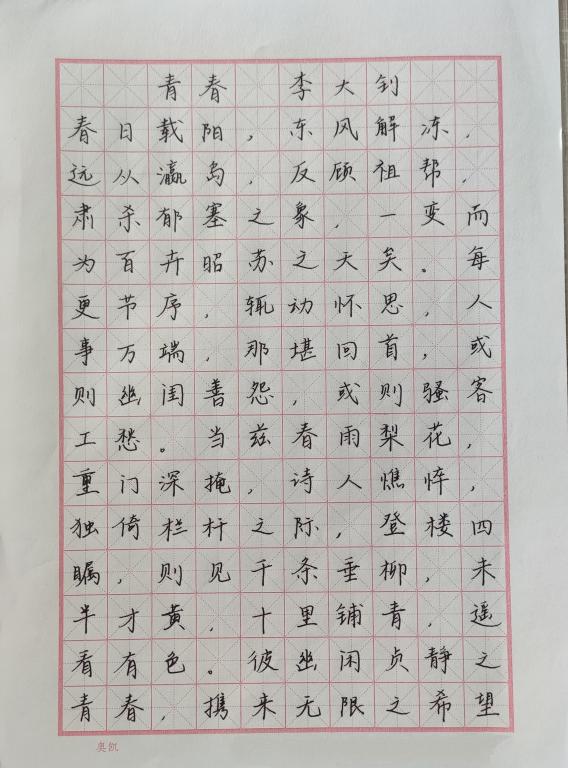 青春 李大钊
春日载阳，东风解冻，
远从瀛岛，反顾祖帮，
肃杀郁塞之象，一变而
为百卉昭苏之天矣。每
更节序，辄动怀思，人
事万端，那堪回首，或
则幽闺善怨，或则骚客
工愁。当兹春雨梨花，
重门深掩，诗人憔悴，
独倚栏杆之际，登楼四
瞩，则见千条垂柳，未
半才黄，十里铺青，遥
看有色。彼幽闲贞静之
青春，携来无限之希望
奥凯